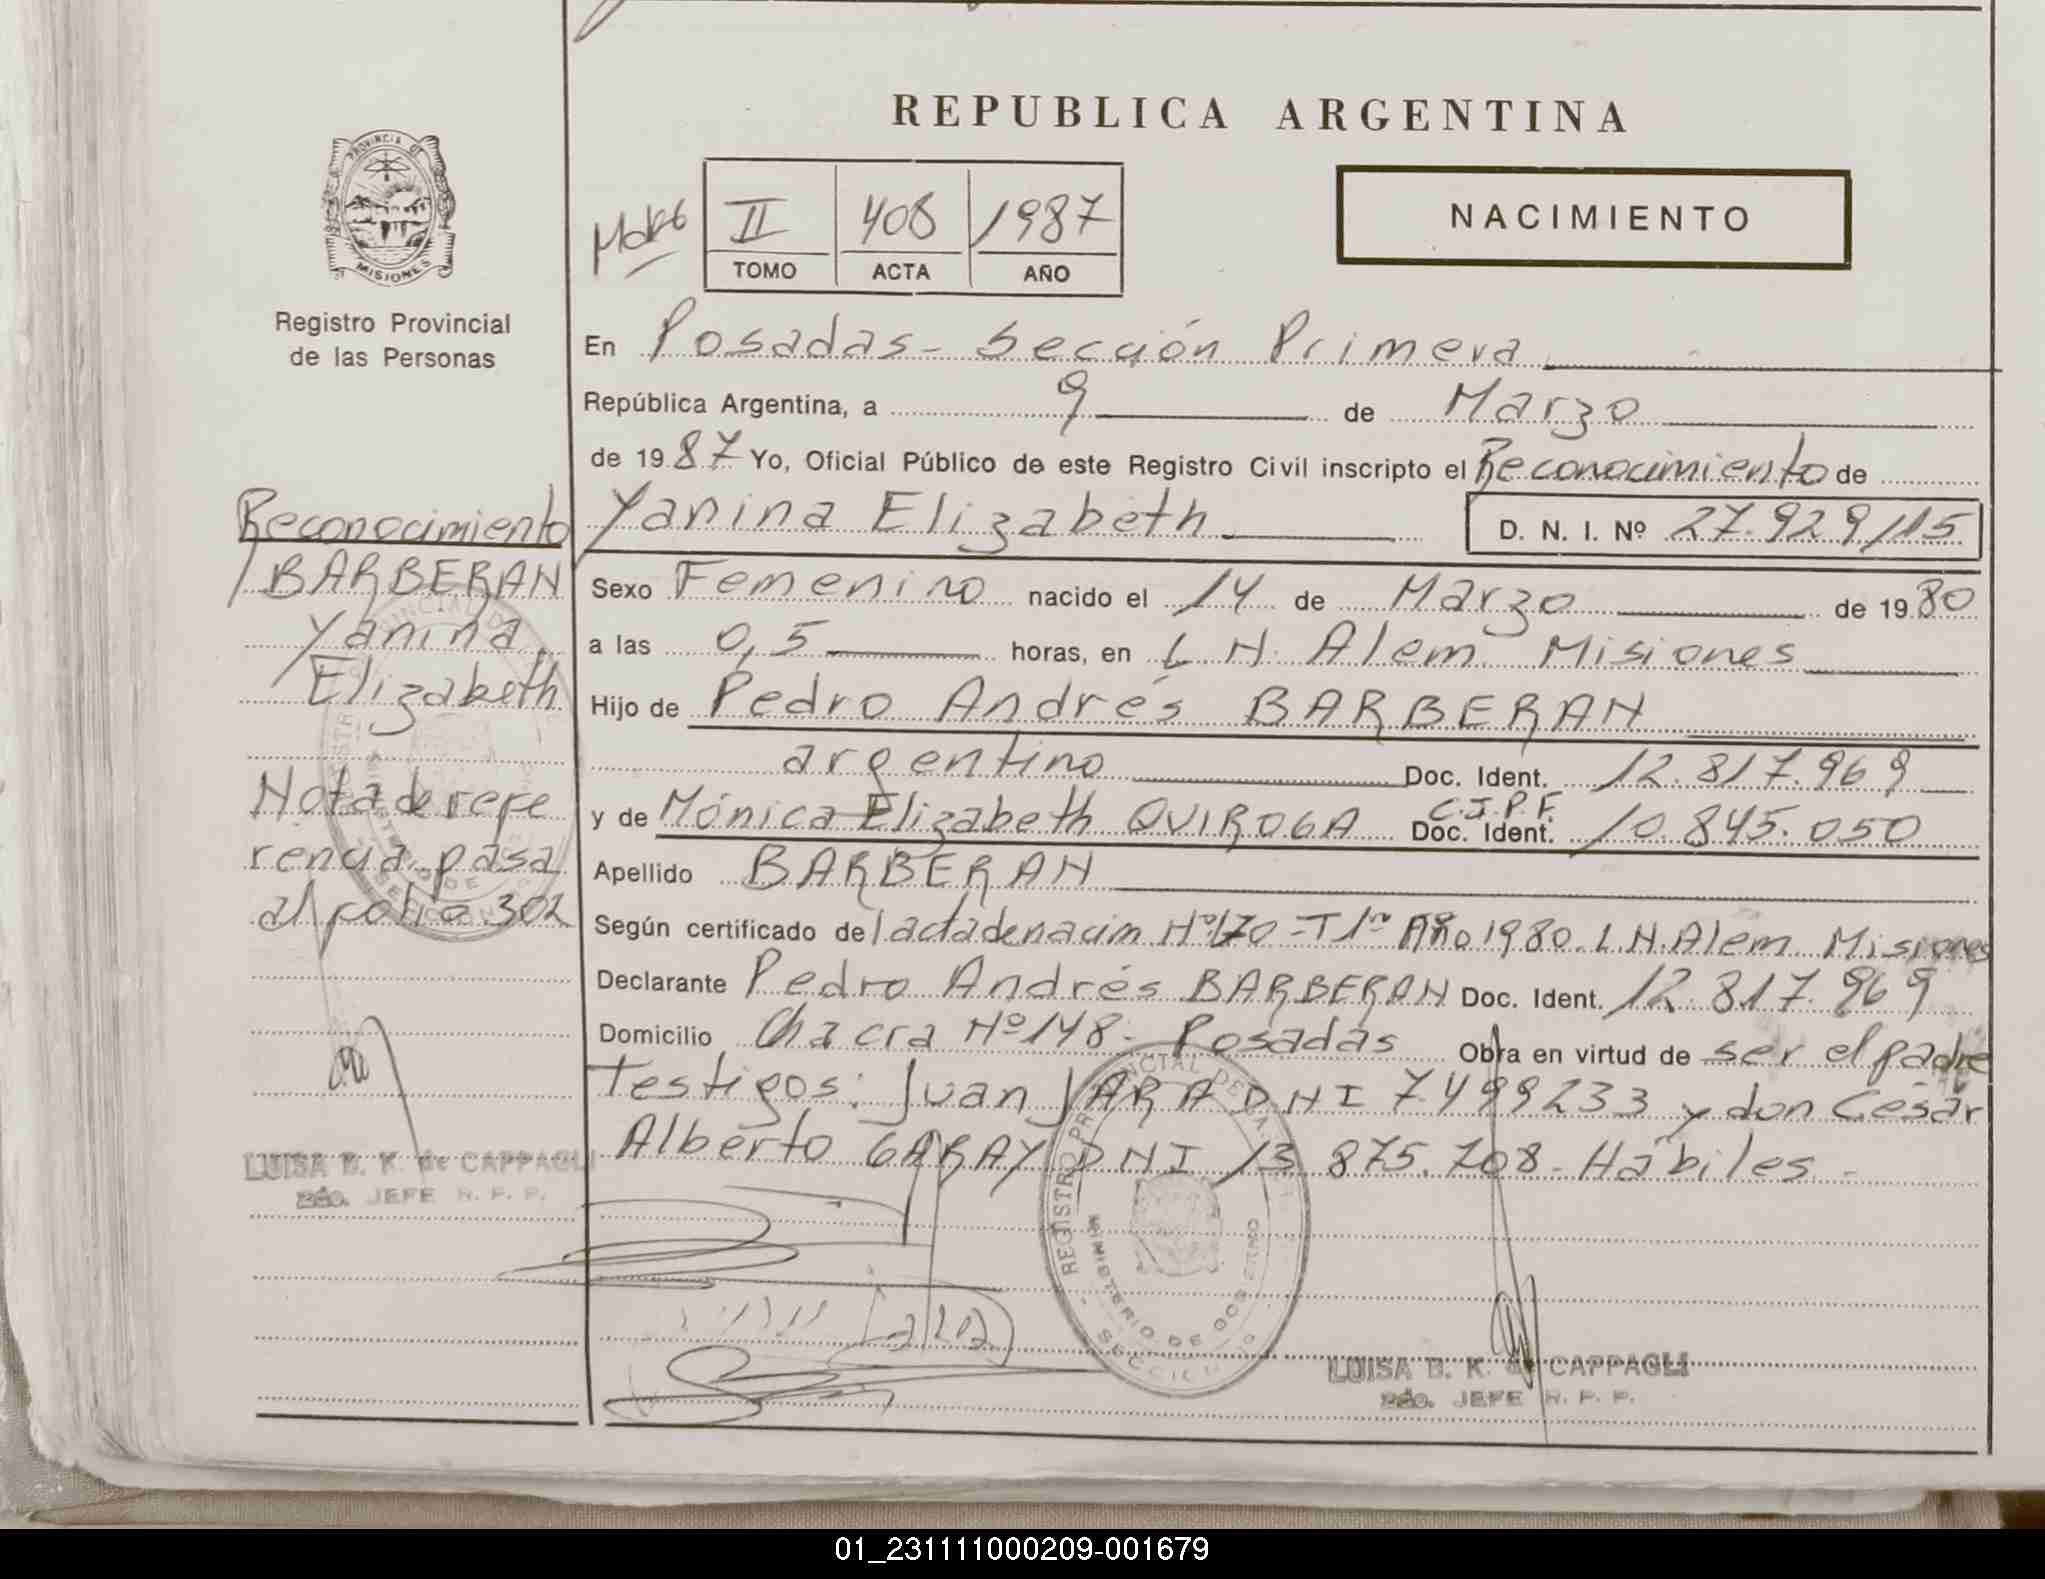 REPUBLICA ARGENTINA
PROVINCIA DE
MISIONES
Registro Provincial
de las Personas
II 408 1987
TOMO ACTA AÑO
NACIMIENTO
En Posadas - Sección Primera
República Argentina, a 9 de Marzo
de 1987 Yo, Oficial Público de este Registro Civil inscripto el Reconocimiento de
Yanina Elizabeth D. N. I. Nº 27.929115
Sexo Femenino nacido el 14 de Marzo de 1980
a las 0,5 horas, en L. N. Alem Misiones
Hijo de Pedro Andrés BARBERAN
argentino Doc. Ident. 12.817.969
y de Mónica Elizabeth QUIROGA C.I.P.F. Doc. Ident. 10.845.050
Apellido BARBERAN
Según certificado de l acta de nacim Nº 170 - T 1º Año 1980. L.N. Alem Misiones
Declarante Pedro Andrés BARBERAN Doc. Ident. 12.817.969
Domicilio Chacra Nº 148 - Posadas Obra en virtud de ser el padre
Testigos: Juan JARA DNI 7499233 y don César
Alberto GARAY DNI 13.875.708 - Hábiles -
Reconocimiento
BARBERAN
Yanina
Elizabeth
Nota de refe
rencia pasa
al folio 302
LUISA B. K. de CAPPAGLI
2do. JEFE R. P. P.
REGISTRO PROVINCIAL DE
MINISTERIO DE GOBIERNO
SECCION
LUISA B. K. de CAPPAGLI
2do. JEFE R. P. P.
01_231111000209-001679